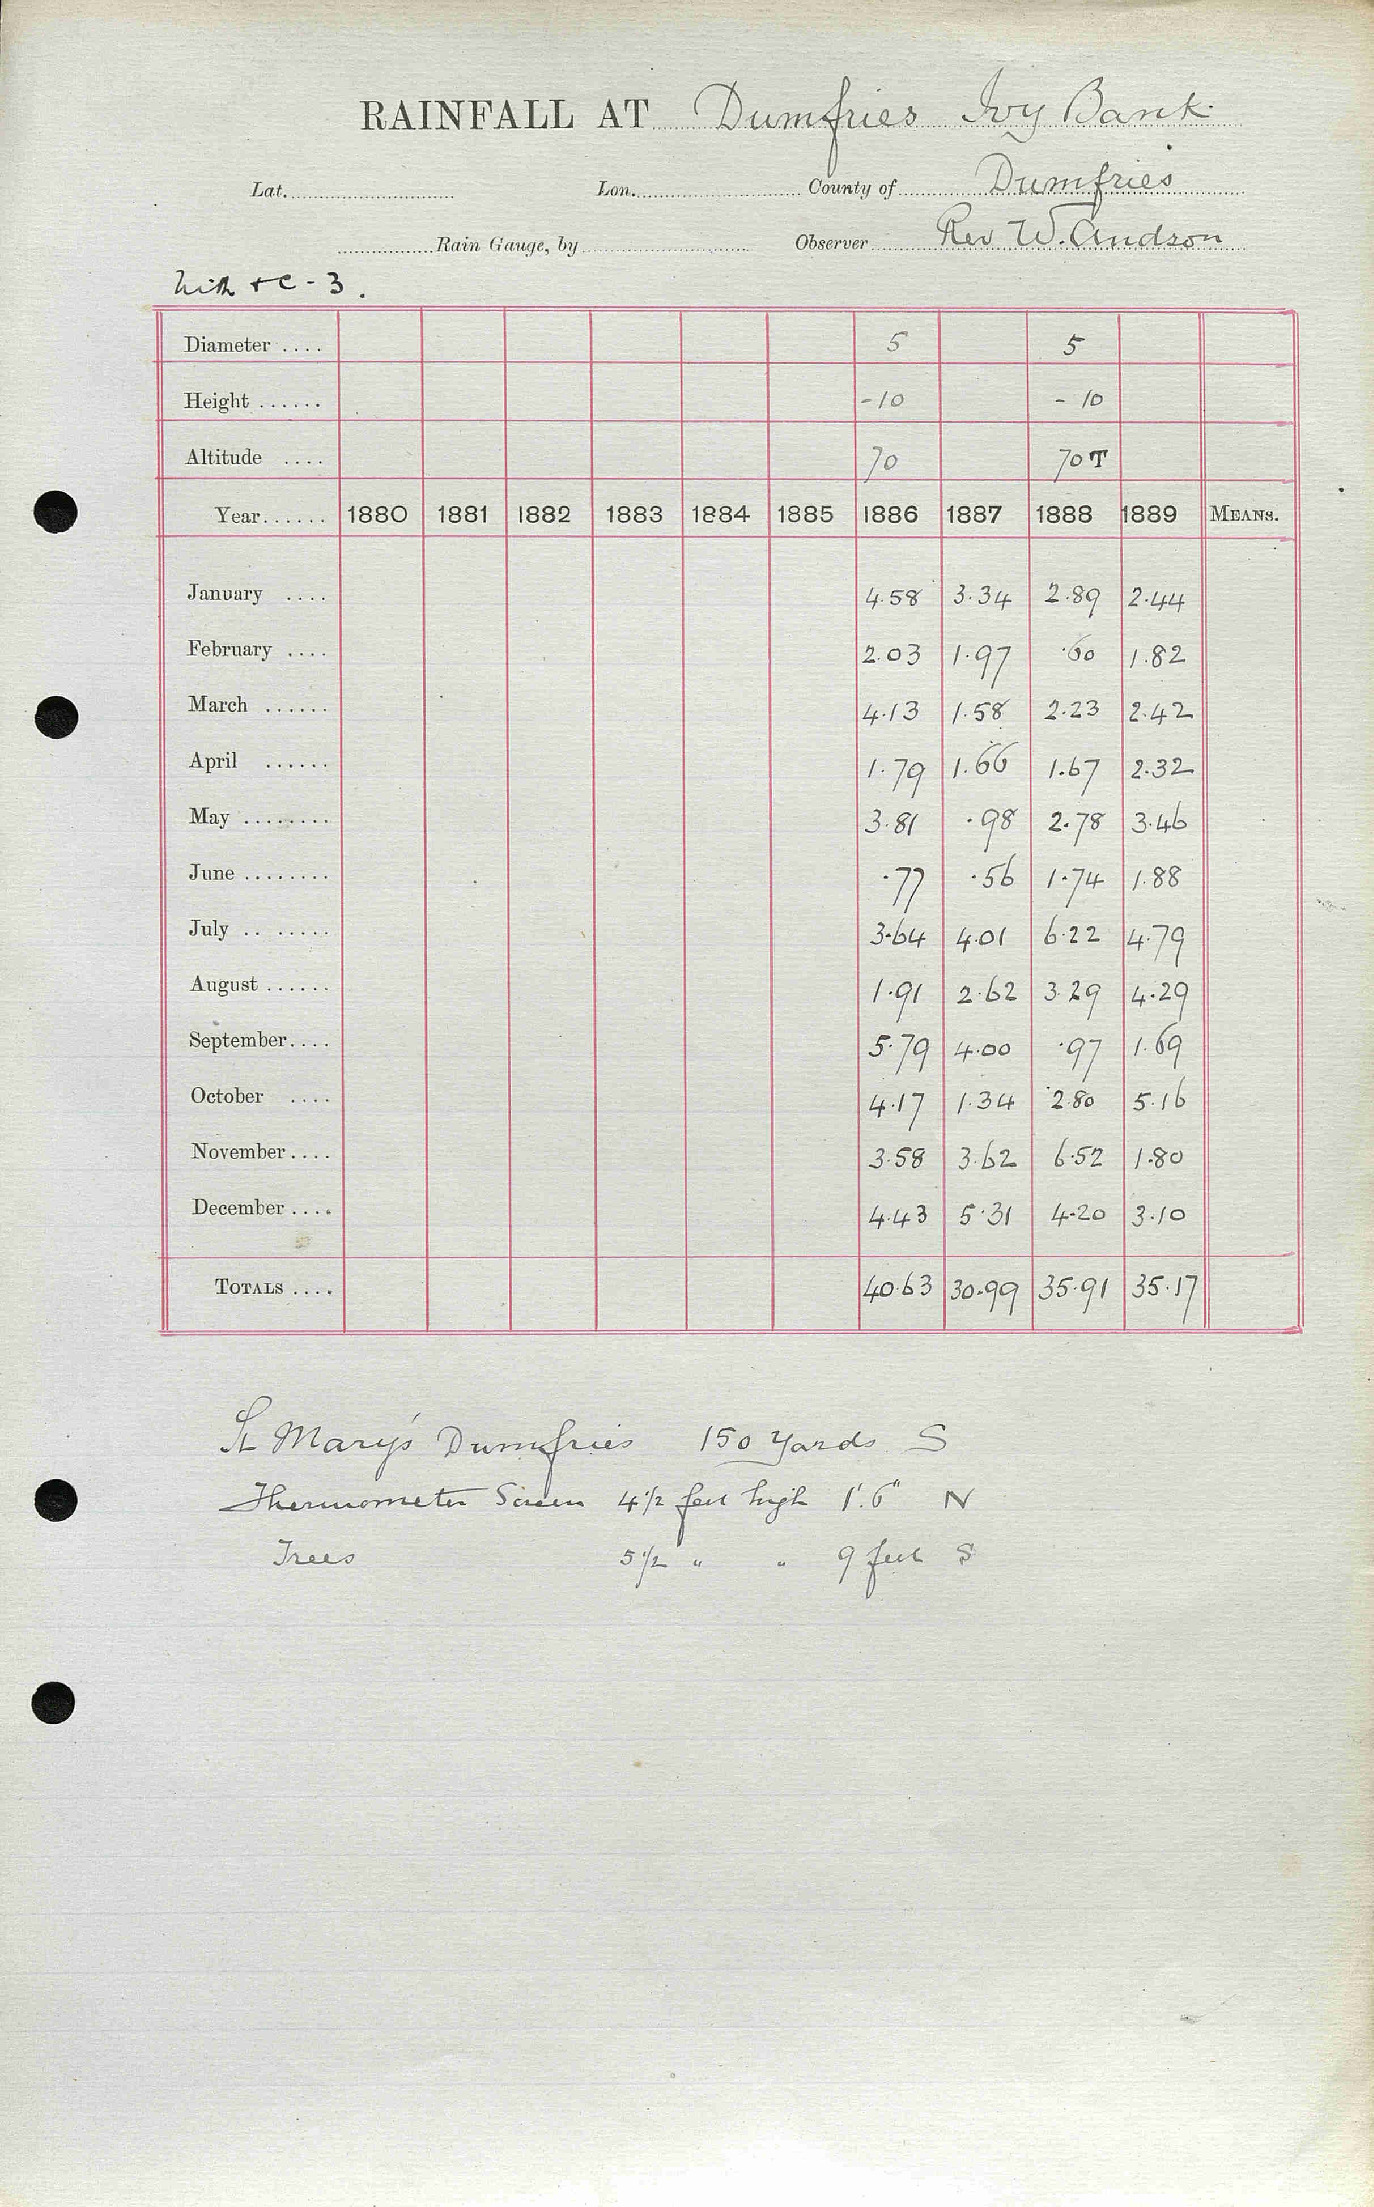 RAINFALL AT Dumfries Ivy Bank
Lat. Lon. County of Dumfries
Rain Gauge, by Observer Rev W. Andson
Nith + C - 3.
Diameter .... 5 5
Height ...... -10 - 10
Altitude .... 70 70 T
Year...... 1880 1881 1882 1883 1884 1885 1886 1887 1888 1889 MEANS.
January .... 4.58 3.34 2.89 2.44
February .... 2.03 1.97 .60 1.82
March ...... 4.13 1.58 2.23 2.42
April ...... 1.79 1.66 1.67 2.32
May ........ 3.81 .98 2.78 3.46
June ........ .77 .56 1.74 1.88
July .. ..... 3.64 4.01 6.22 4.79
August ...... 1.91 2.62 3.29 4.29
September.... 5.79 4.00 .97 1.69
October .... 4.17 1.34 2.80 5.16
November.... 3.58 3.62 6.52 1.80
December .... 4.43 5.31 4.20 3.10
TOTALS .... 40.63 30.99 35.91 35.17
St Mary's Dumfries 150 Yards S
Thermometer Screen 4 1/2 feet high 1'.6" N
Trees 5 1/2 " " 9 feet S